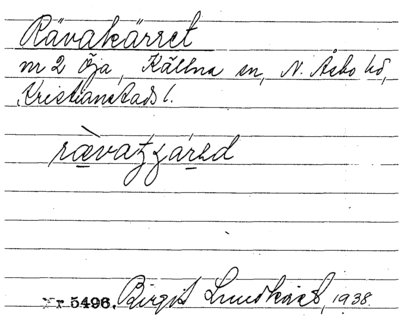 Rävakärret
nr 2 Öja, Källna sn, N. Åsbo hd,
Kristianstads l.
Nr 5496. Birgit 1938